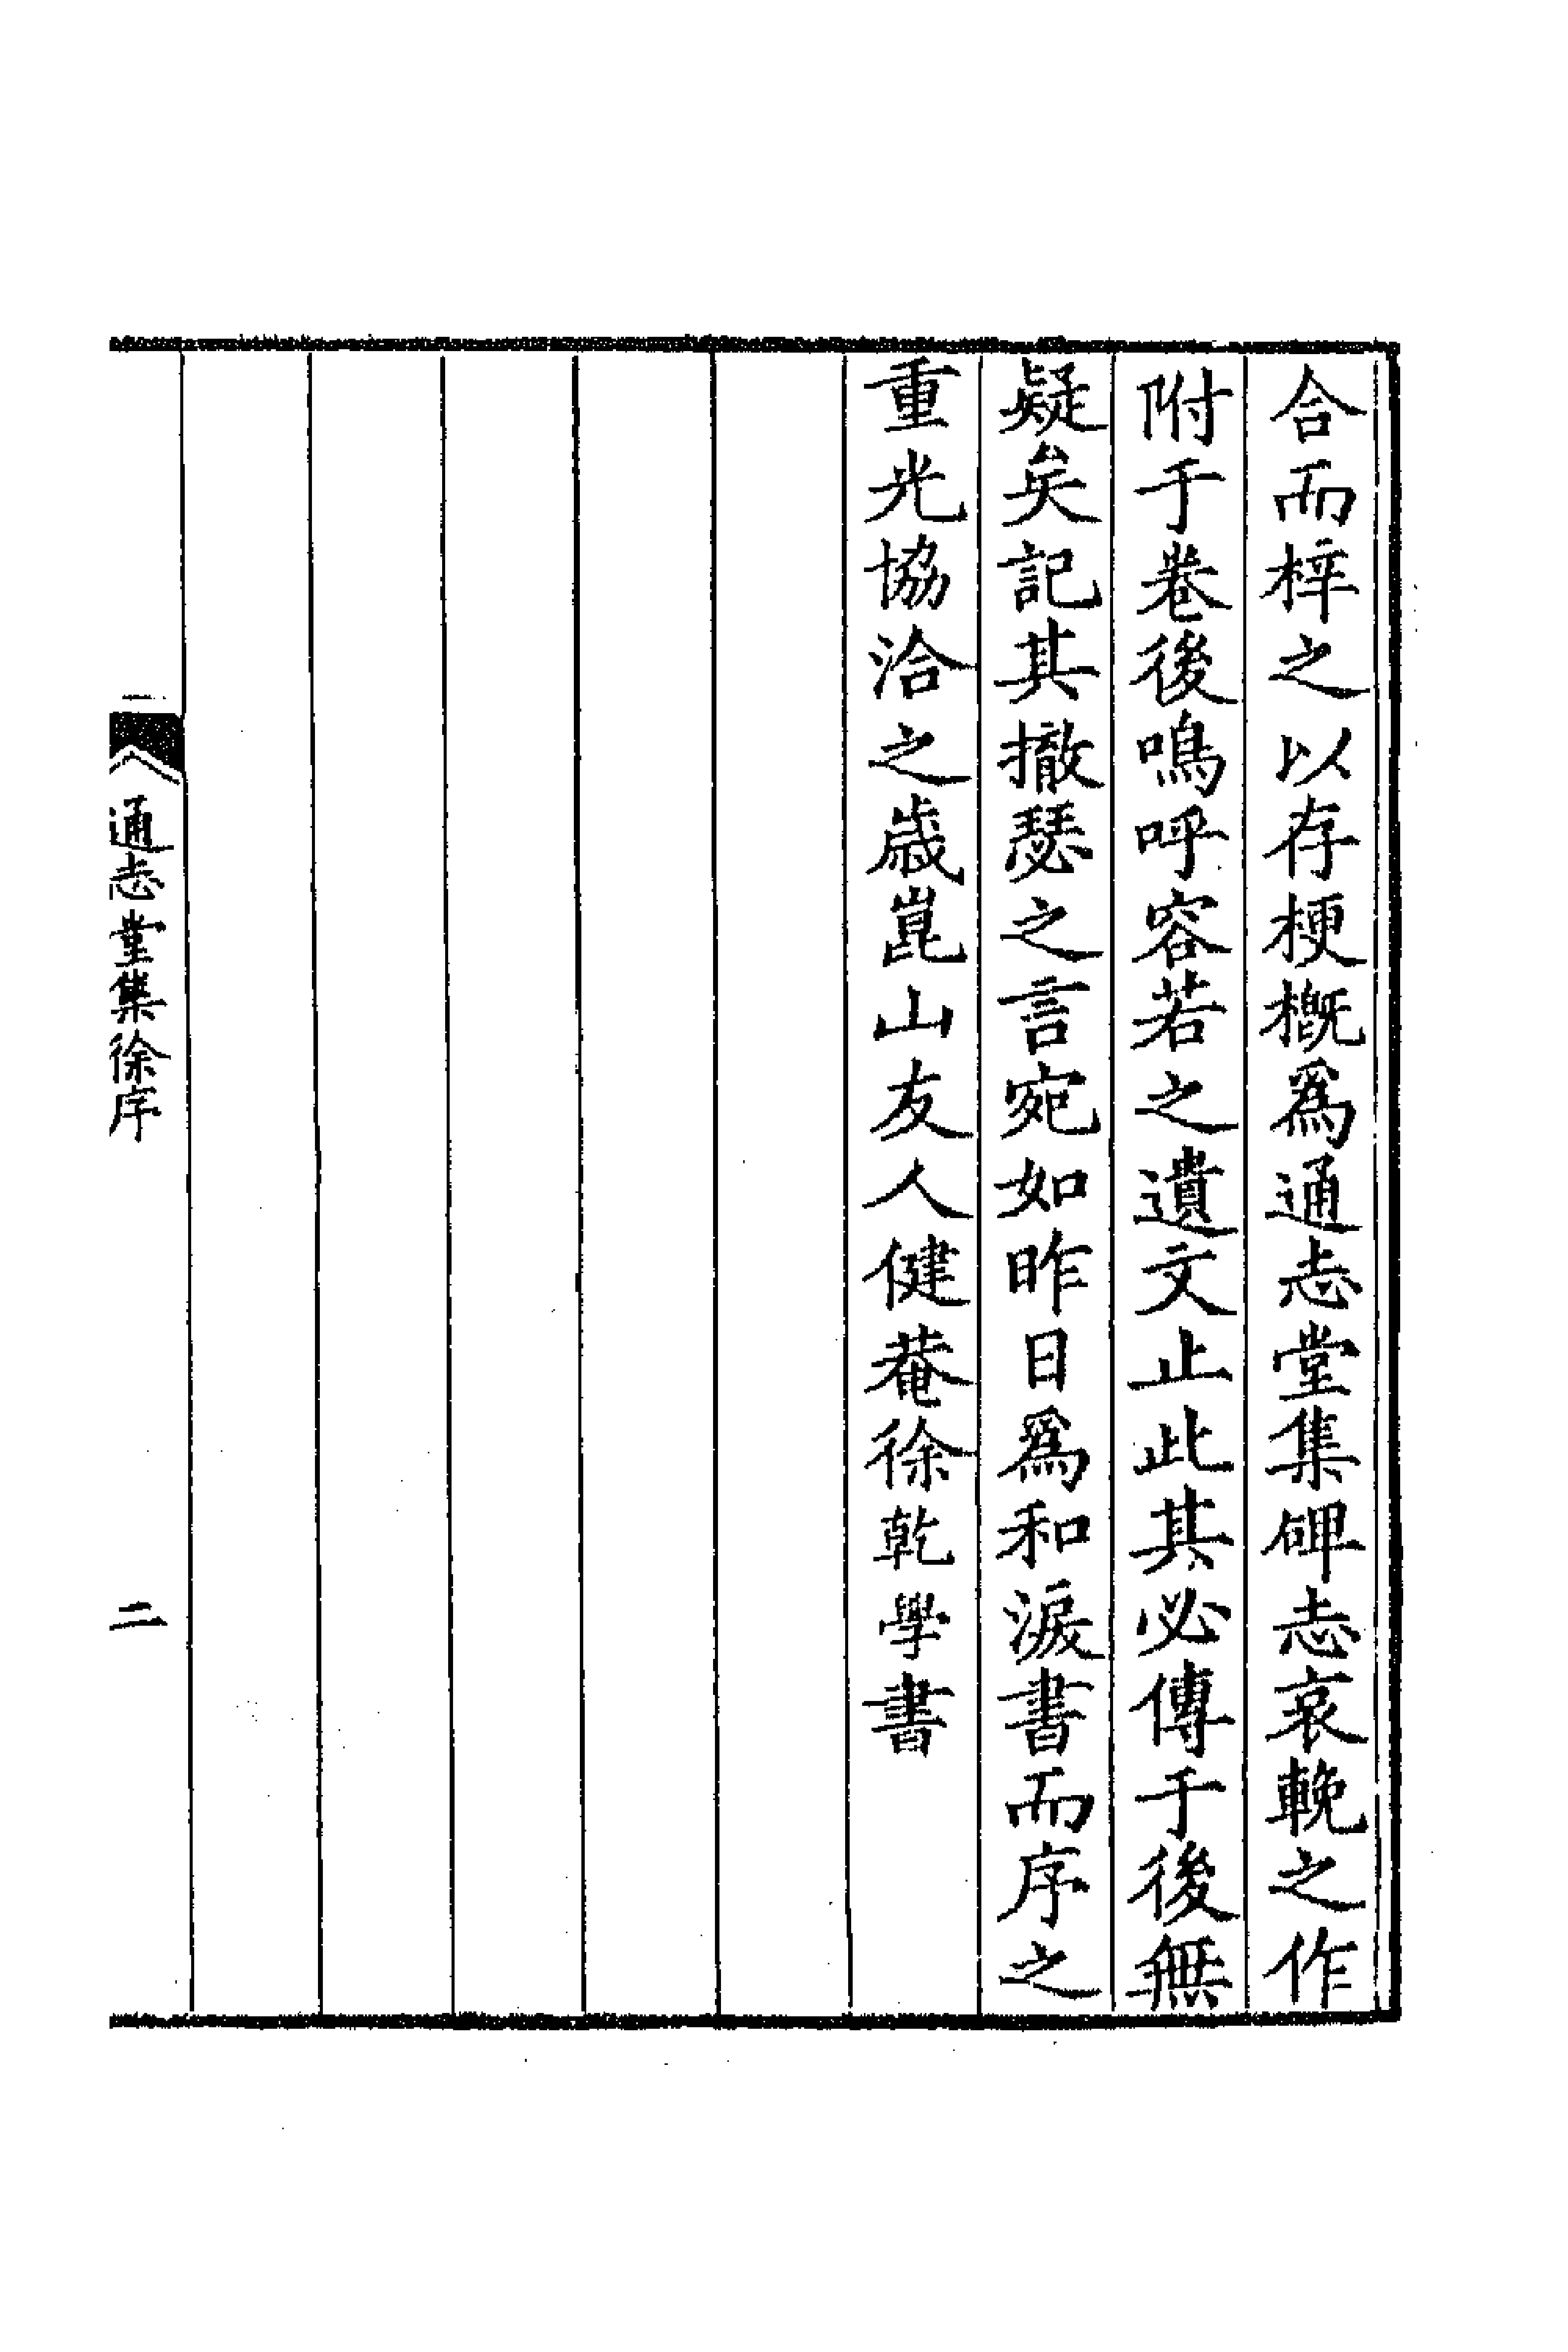 合而梓之以存梗槪爲通志堂集碑志哀輓之作
附于卷後嗚呼容若之遺文止此其必傳于後無
疑矣記其撤瑟之言宛如昨日爲和淚書而序之
重光協洽之歳崑山友人健菴徐乾學書
通志堂集徐序
二